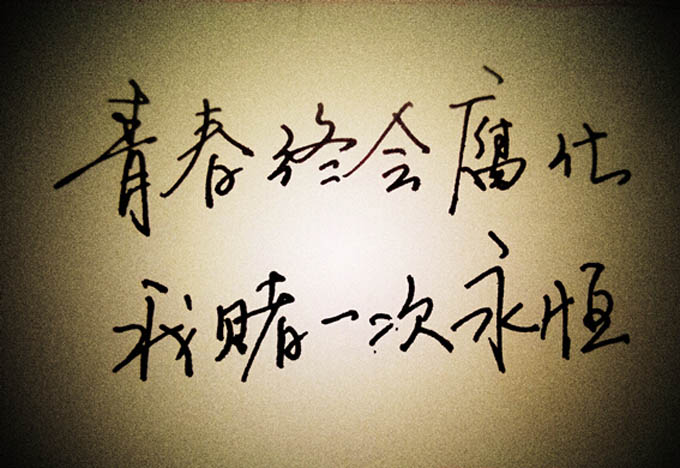 青春终会腐化
我赌一次永恒